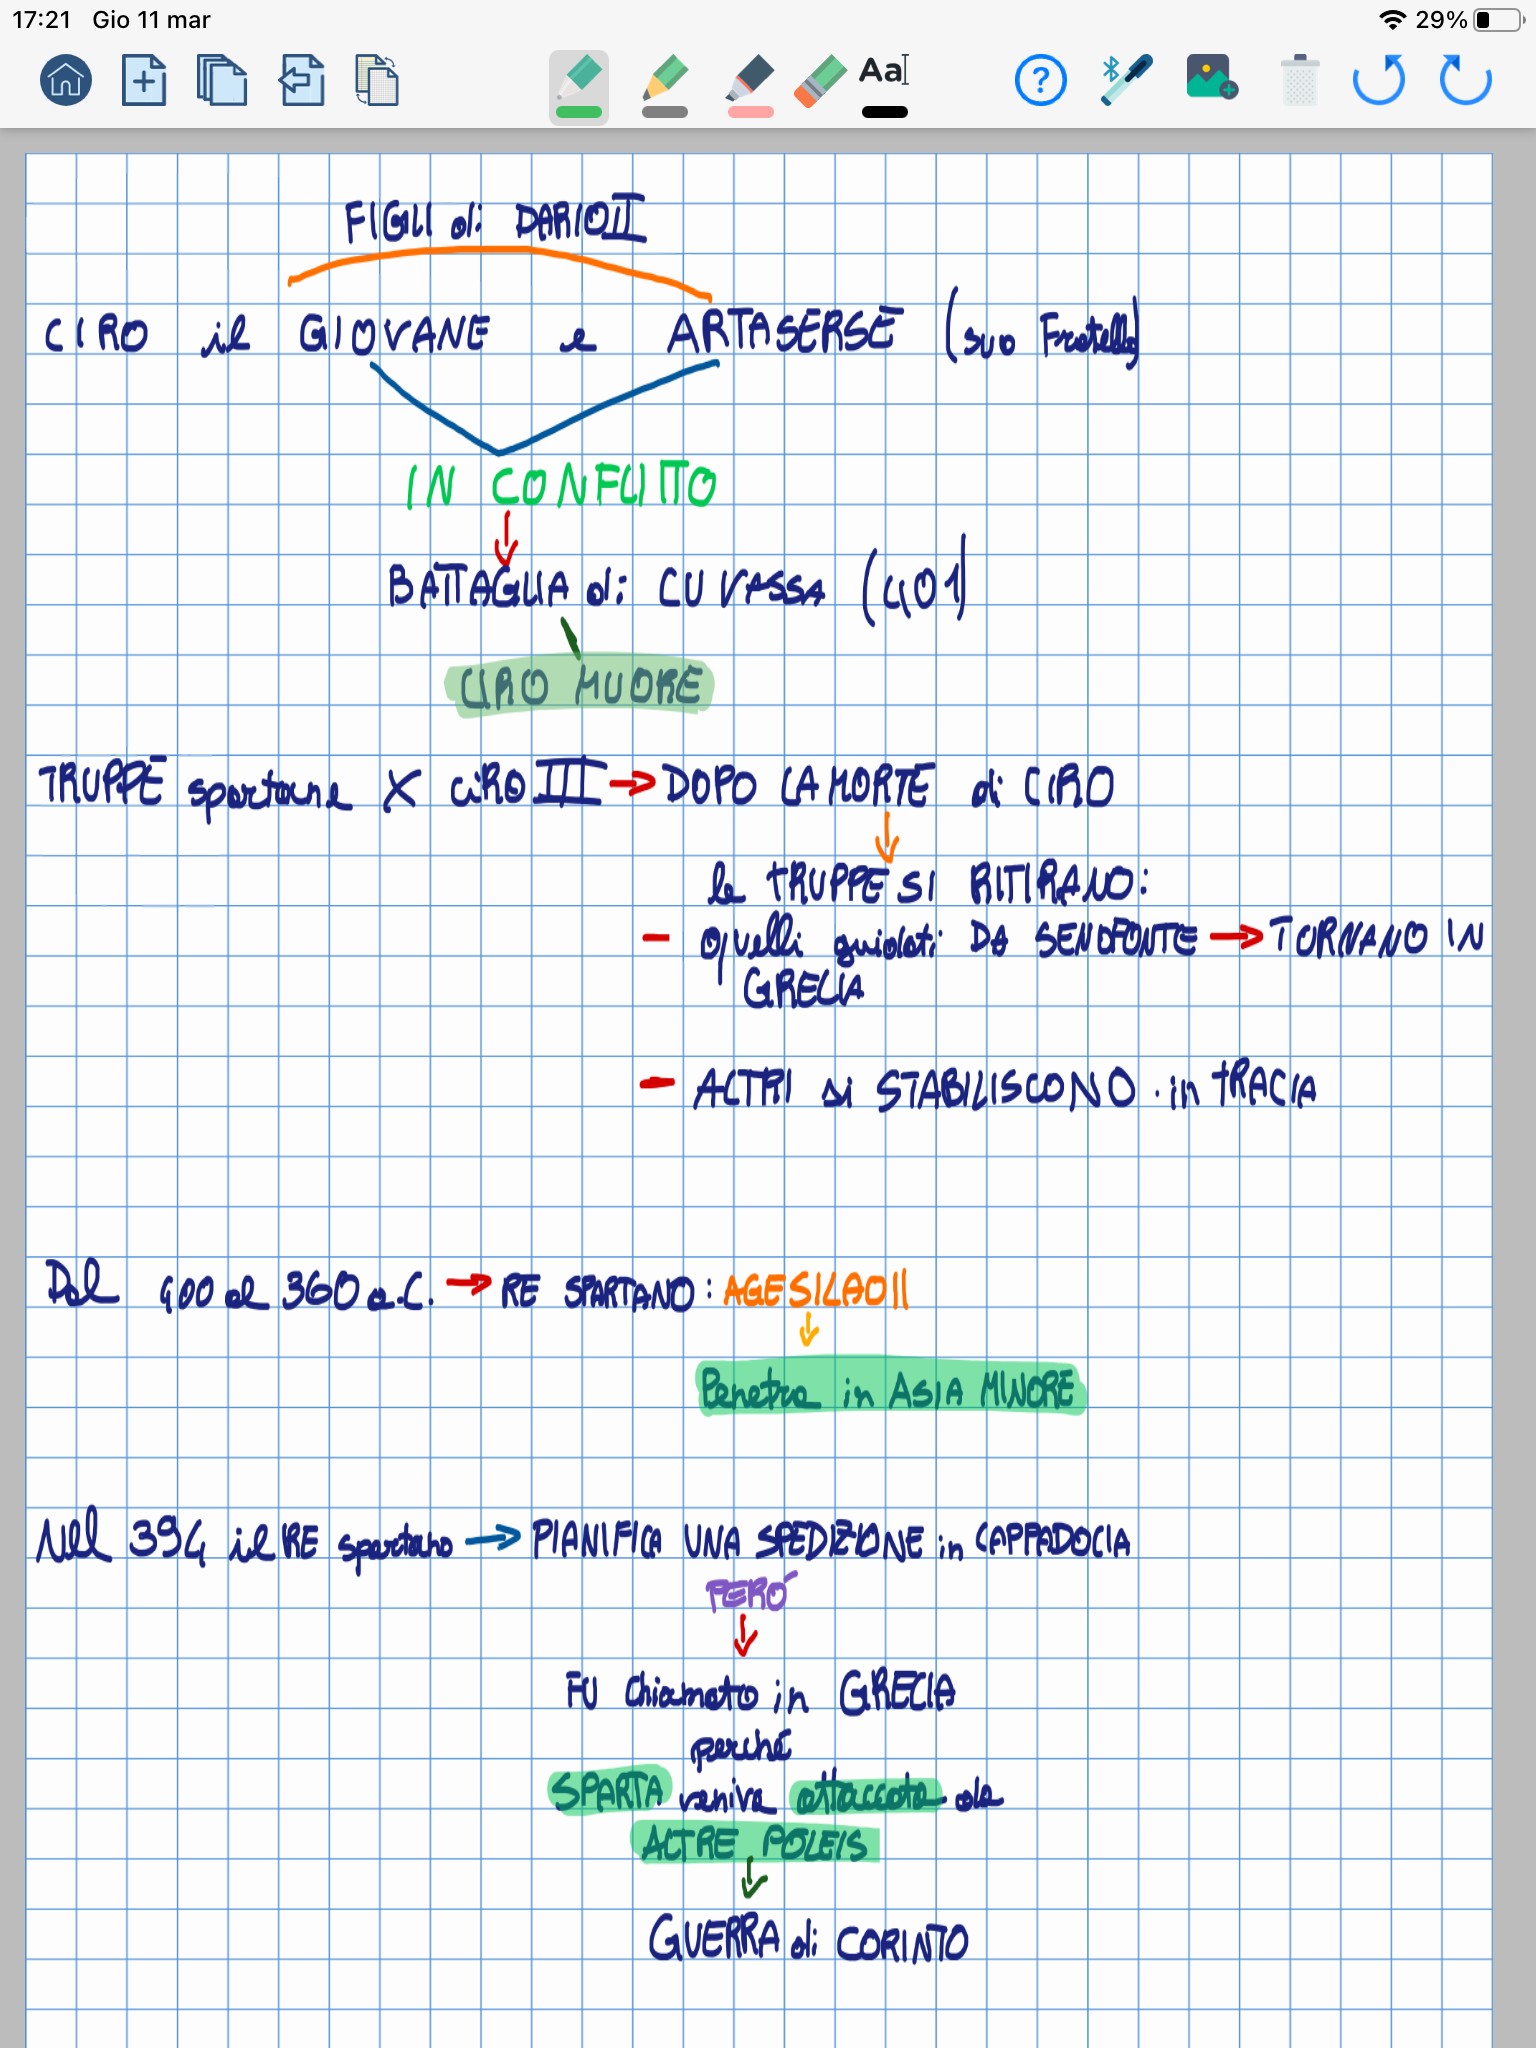 17:21 Gio 11 mar 29%
Aa
?
FIGLI di DARIO II
CIRO il GIOVANE e ARTASERSE (suo Fratello)
IN CONFLITTO
BATTAGLIA di CUVASSA (401)
CIRO MUORE
TRUPPE spartane X CIRO III → DOPO LA MORTE di CIRO
le TRUPPE SI RITIRANO:
- quelli guidati DA SENOFONTE → TORNANO IN
GRECIA
- ALTRI si STABILISCONO in TRACIA
Dal 400 al 360 a.C. → RE SPARTANO: AGESILAO II
Penetra in ASIA MINORE
Nel 394 il RE spartano → PIANIFICA UNA SPEDIZIONE in CAPPADOCIA
PERÓ
FU chiamato in GRECIA
perché
SPARTA veniva attaccata da
ALTRE POLEIS
GUERRA di CORINTO